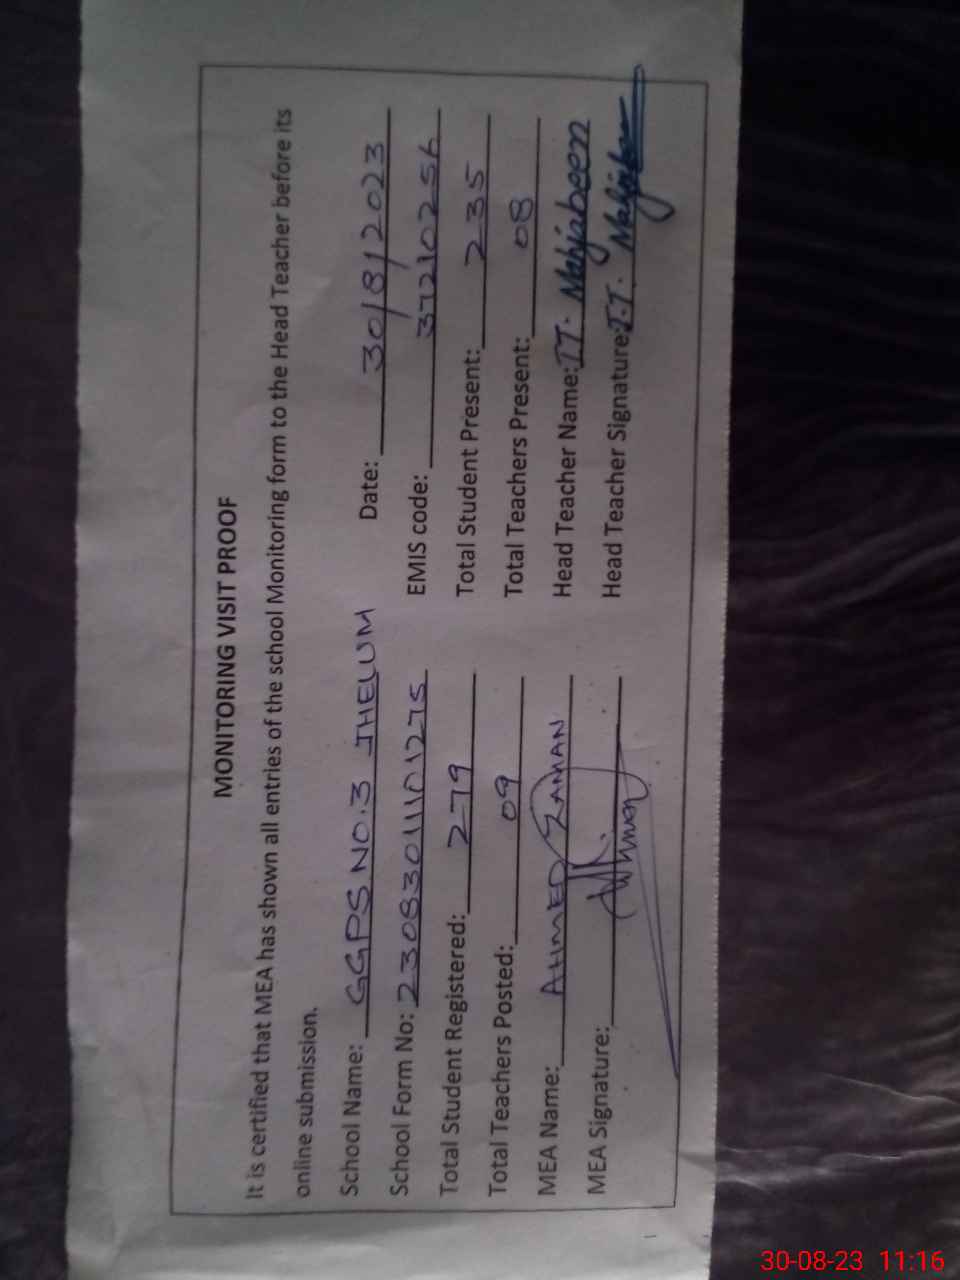 MONITORING VISIT PROOF
It is certified that MEA has shown all entries of the school Monitoring form to the Head Teacher before its
online submission.
School Name: GGPS NO.3 JHELUM Date: 30/8/2023
School Form No: 2308301101275 EMIS code: 37210256
Total Student Registered: 279 Total Student Present: 235
Total Teachers Posted: 09 Total Teachers Present: 08
MEA Name: AHMED ZAMAN Head Teacher Name: IT. Mahjabeen
MEA Signature: Head Teacher Signature: I.T.
30-08-23 11:16